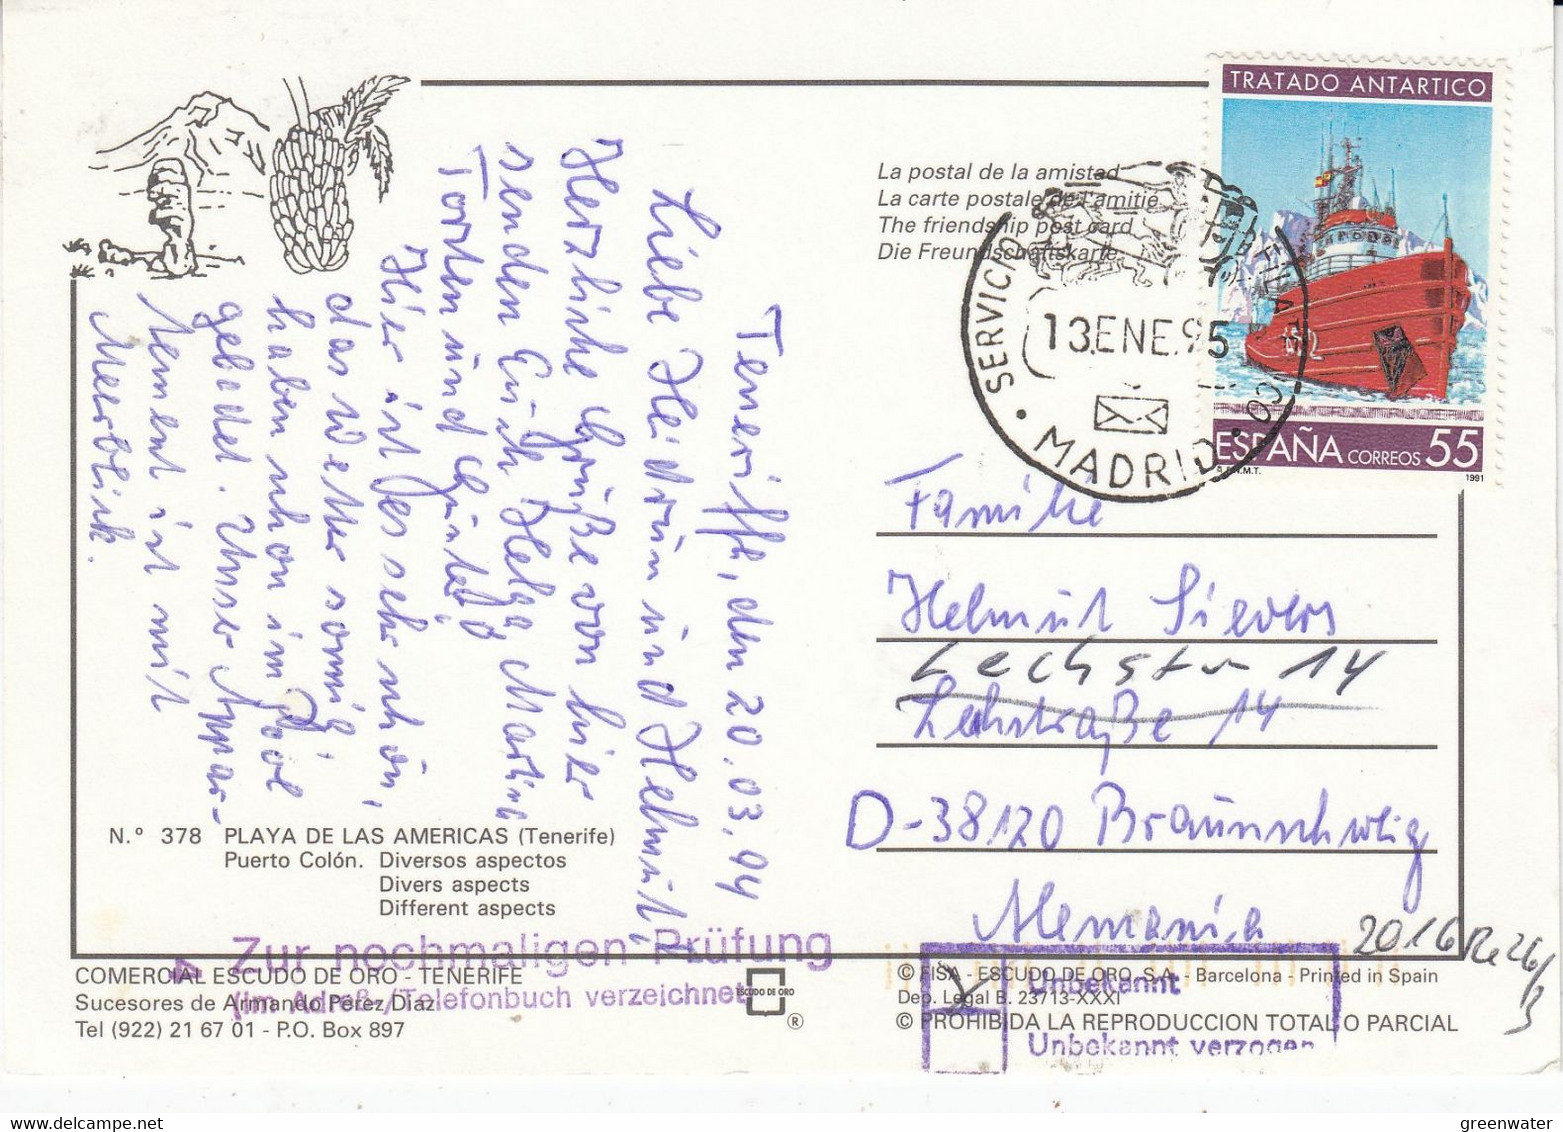 Teneriffa, den 20.03.94
Liebe Heidrun und Helmut,
Herzliche Grüße von hier
senden Euch Helga, Martina
Torsten und Günter
Hier ist es sehr schön,
das Wetter sonnig
haben schon im Pool
gebadet. Unser Appar-
tement ist mit
Meerblick.
N.º 378 PLAYA DE LAS AMERICAS (Tenerife)
Puerto Colón. Diversos aspectos
Divers aspects
Different aspects
Zur nochmaligen Prüfung
(im Adreß-/Telefonbuch verzeichnet
COMERCIAL ESCUDO DE ORO - TENERIFE
Sucesores de Armando Pérez Díaz
Tel (922) 21 67 01 - P.O. Box 897
ESCUDO DE ORO
®
La postal de la amistad
La carte postale de l'amitié
The friendship post card
Die Freundschaftskarte
SERVICIO
13.ENE.95
MADRID
TRATADO ANTARTICO
ESPAÑA CORREOS 55
F.N.M.T. 1991
Familie
Helmut Sievers
Lechstr 14
Lechstraße 14
D-38120 Braunschweig
Alemania
2016 Re26/3
© FISA - ESCUDO DE ORO, S.A. - Barcelona Printed in Spain
Dep. Legal B. 23713-XXXI
© PROHIBIDA LA REPRODUCCION TOTAL O PARCIAL
Unbekannt
Unbekannt verzogen
greenwater